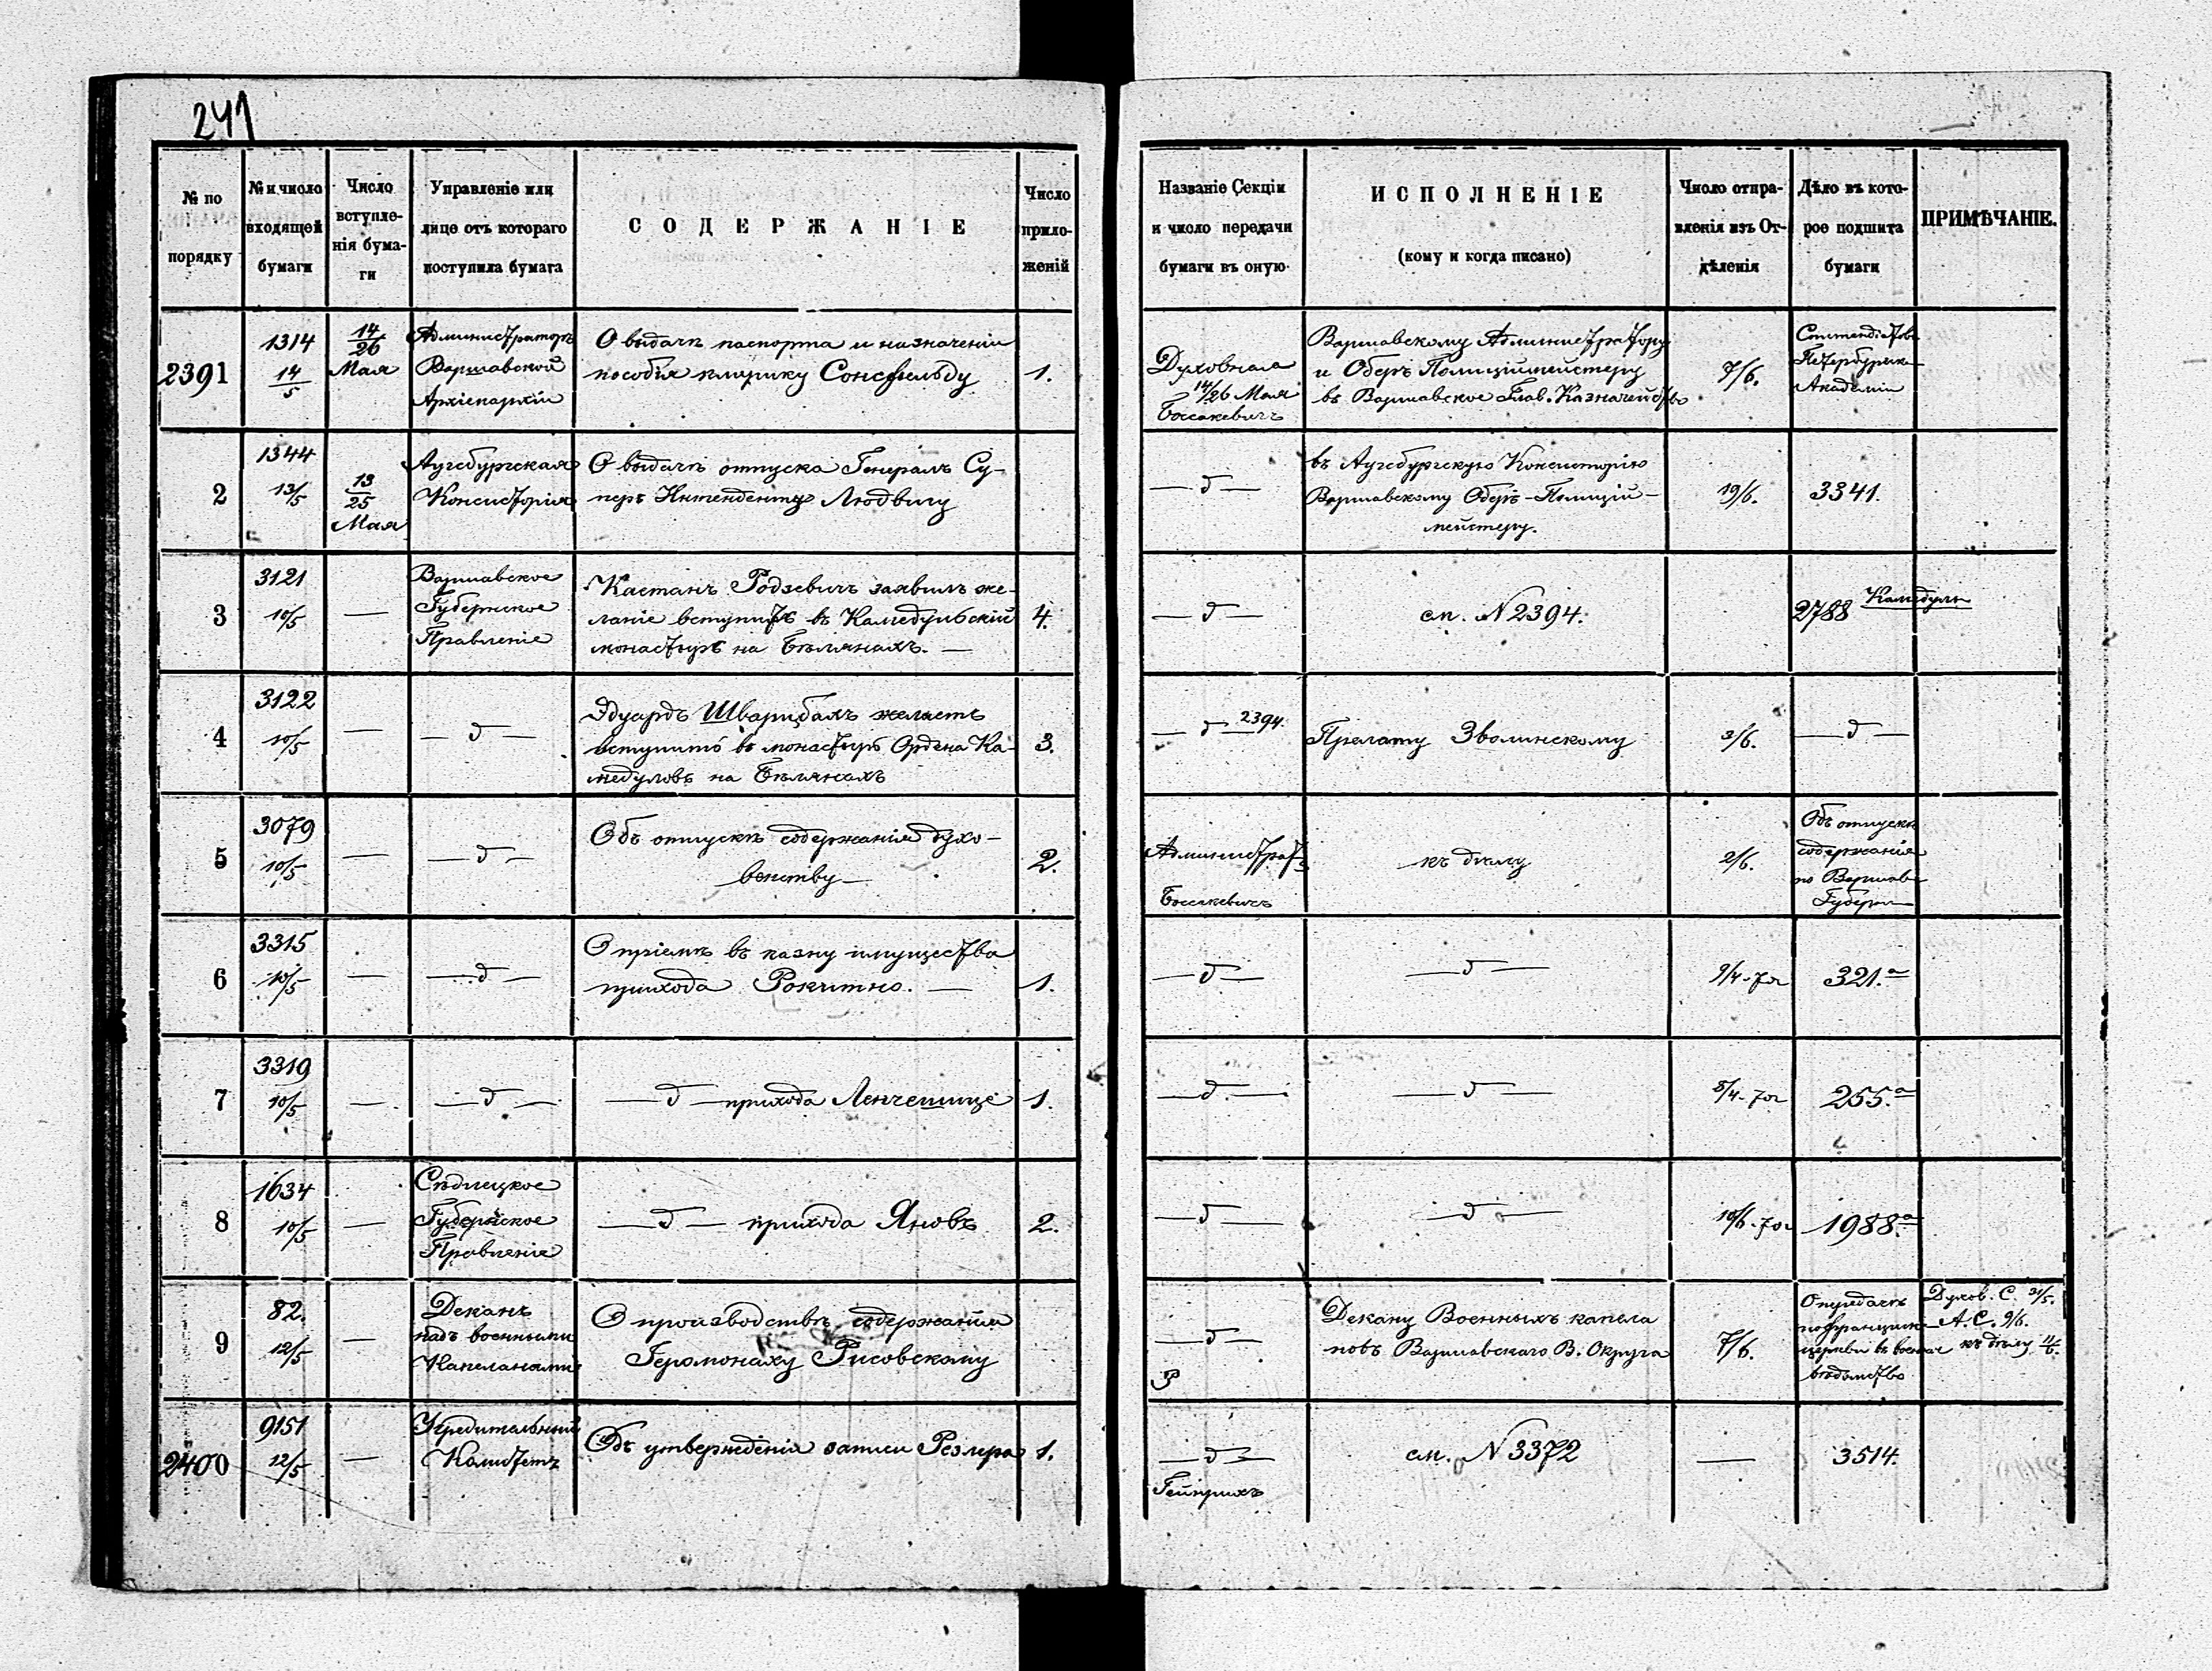 241
№ по порядку
№ и число входящей бумаги
Число вступле-нія бума-ги
Управленіе или лице отъ котораго поступила бумага
СОДЕРЖАНІЕ
Число прило-женій
Названіе Секціи и число передачи бумаги въ оную
ИСПОЛНЕНІЕ
(кому и когда писано)
Число отпра-вленія изъ От-дѣленія
Дѣло въ кото-рое подшита бумаги
ПРИМѢЧАНІЕ.
2391
1314
14/5
14/26
Мая
Администраторъ
Варшавской
Архіепархіи
О выдачѣ паспорта и назначеніи
пособія клирику Сонсфельду
1.
Духовная
14/26 Мая
Босакевичъ
Варшавскому Администратору
и Оберъ Полиціймейстеру
въ Варшавское Глав. Казначейство
7/6.
Петербургск
Академіи
2
1344
13/5
13/25
Мая
Аугсбургская
Консисторія
О выдачѣ отпуска Генералъ Су-
перъ Интенденту Людвигу
—д—
въ Аугсбургскую Консисторію
Варшавскому Оберъ-Полицій-
мейстеру.
19/6.
3341.
3
3121
10/5
—
Варшавское
Губернское
Правленіе
Каетанъ Родзевичъ заявилъ же-
ланіе вступить въ Камедульскій
монастырь на Бѣлянахъ. —
4.
—д—
см. N 2394.
2788
Камедулы
4
3122
10/5
—
—д—
Эдуардъ Шварцбахъ желаетъ
вступить въ монастырь Ордена Ка-
медуловъ на Бѣлянахъ
3.
—д— 2394.
Прелату Зволинскому
3/6.
—д—
5
3079
10/5
—
—д—
Объ отпускѣ содержанія духо-
венству—
2.
Администрат
Босакевичъ
къ дѣлу
2/6.
Объ отпускѣ
содержанія
по Варшавс
Губерн
6
3315
10/5
—
—д—
О пріемѣ въ казну имущества
прихода Рокитно. —
1.
—д—
—д—
9/4-7
321.а
7
3319
10/5
—
—д—
—д— прихода Ленчешице
1.
—д—
—д—
8/4-7
255.а
8
1634
10/5
—
Сѣдлецкое
Губернское
Правленіе
—д— прихода Яновъ
2.
—д—
—д—
10/6-7
1988.а
9
82.
12/5
—
Деканъ
надъ военными
Капеланами
О производствѣ содержанія
Іеромонаху Рисовскому
—д—
Р
Декану Военныхъ капела
новъ Варшавскаго В. Округа
7/6.
О передачѣ
пофранциск
церкви въ военное
вѣдомство
Духов. С. 31/5.
А. С. 9/6.
къ дѣлу 11/6.
2400
9151
12/5
—
Учредительный
Комитетъ
Объ утвержденіи записи Резлера
1.
—д—
Гейнрихъ
см. N 3372
—
3514.